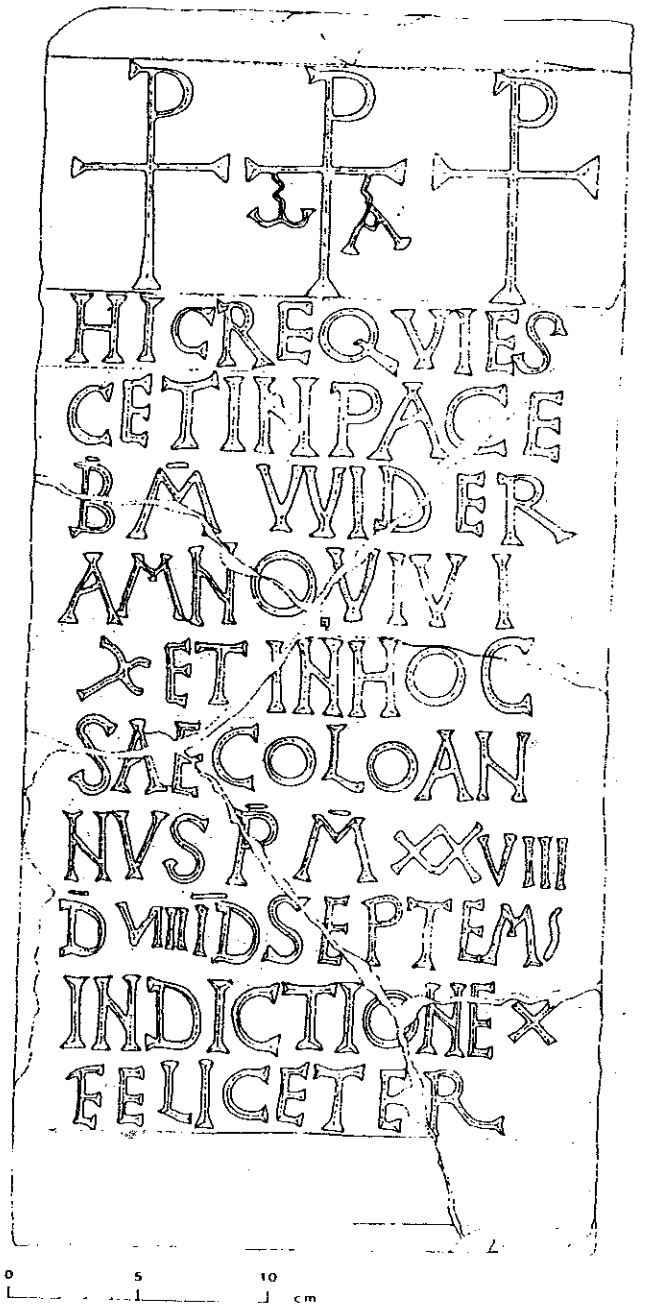 ⳨ ⳨ ⳨
ω A
HICREQVIES
CETINPACE
B̄ M̄ VVIDER
AMNQVIVI
X ET INHOC
SAECOLOAN
NVS P̄ M̄ XXVIII
D̄ VIIII ĪD SEPTEMS
INDICTIONE X
FELICETER
0 5 10 cm